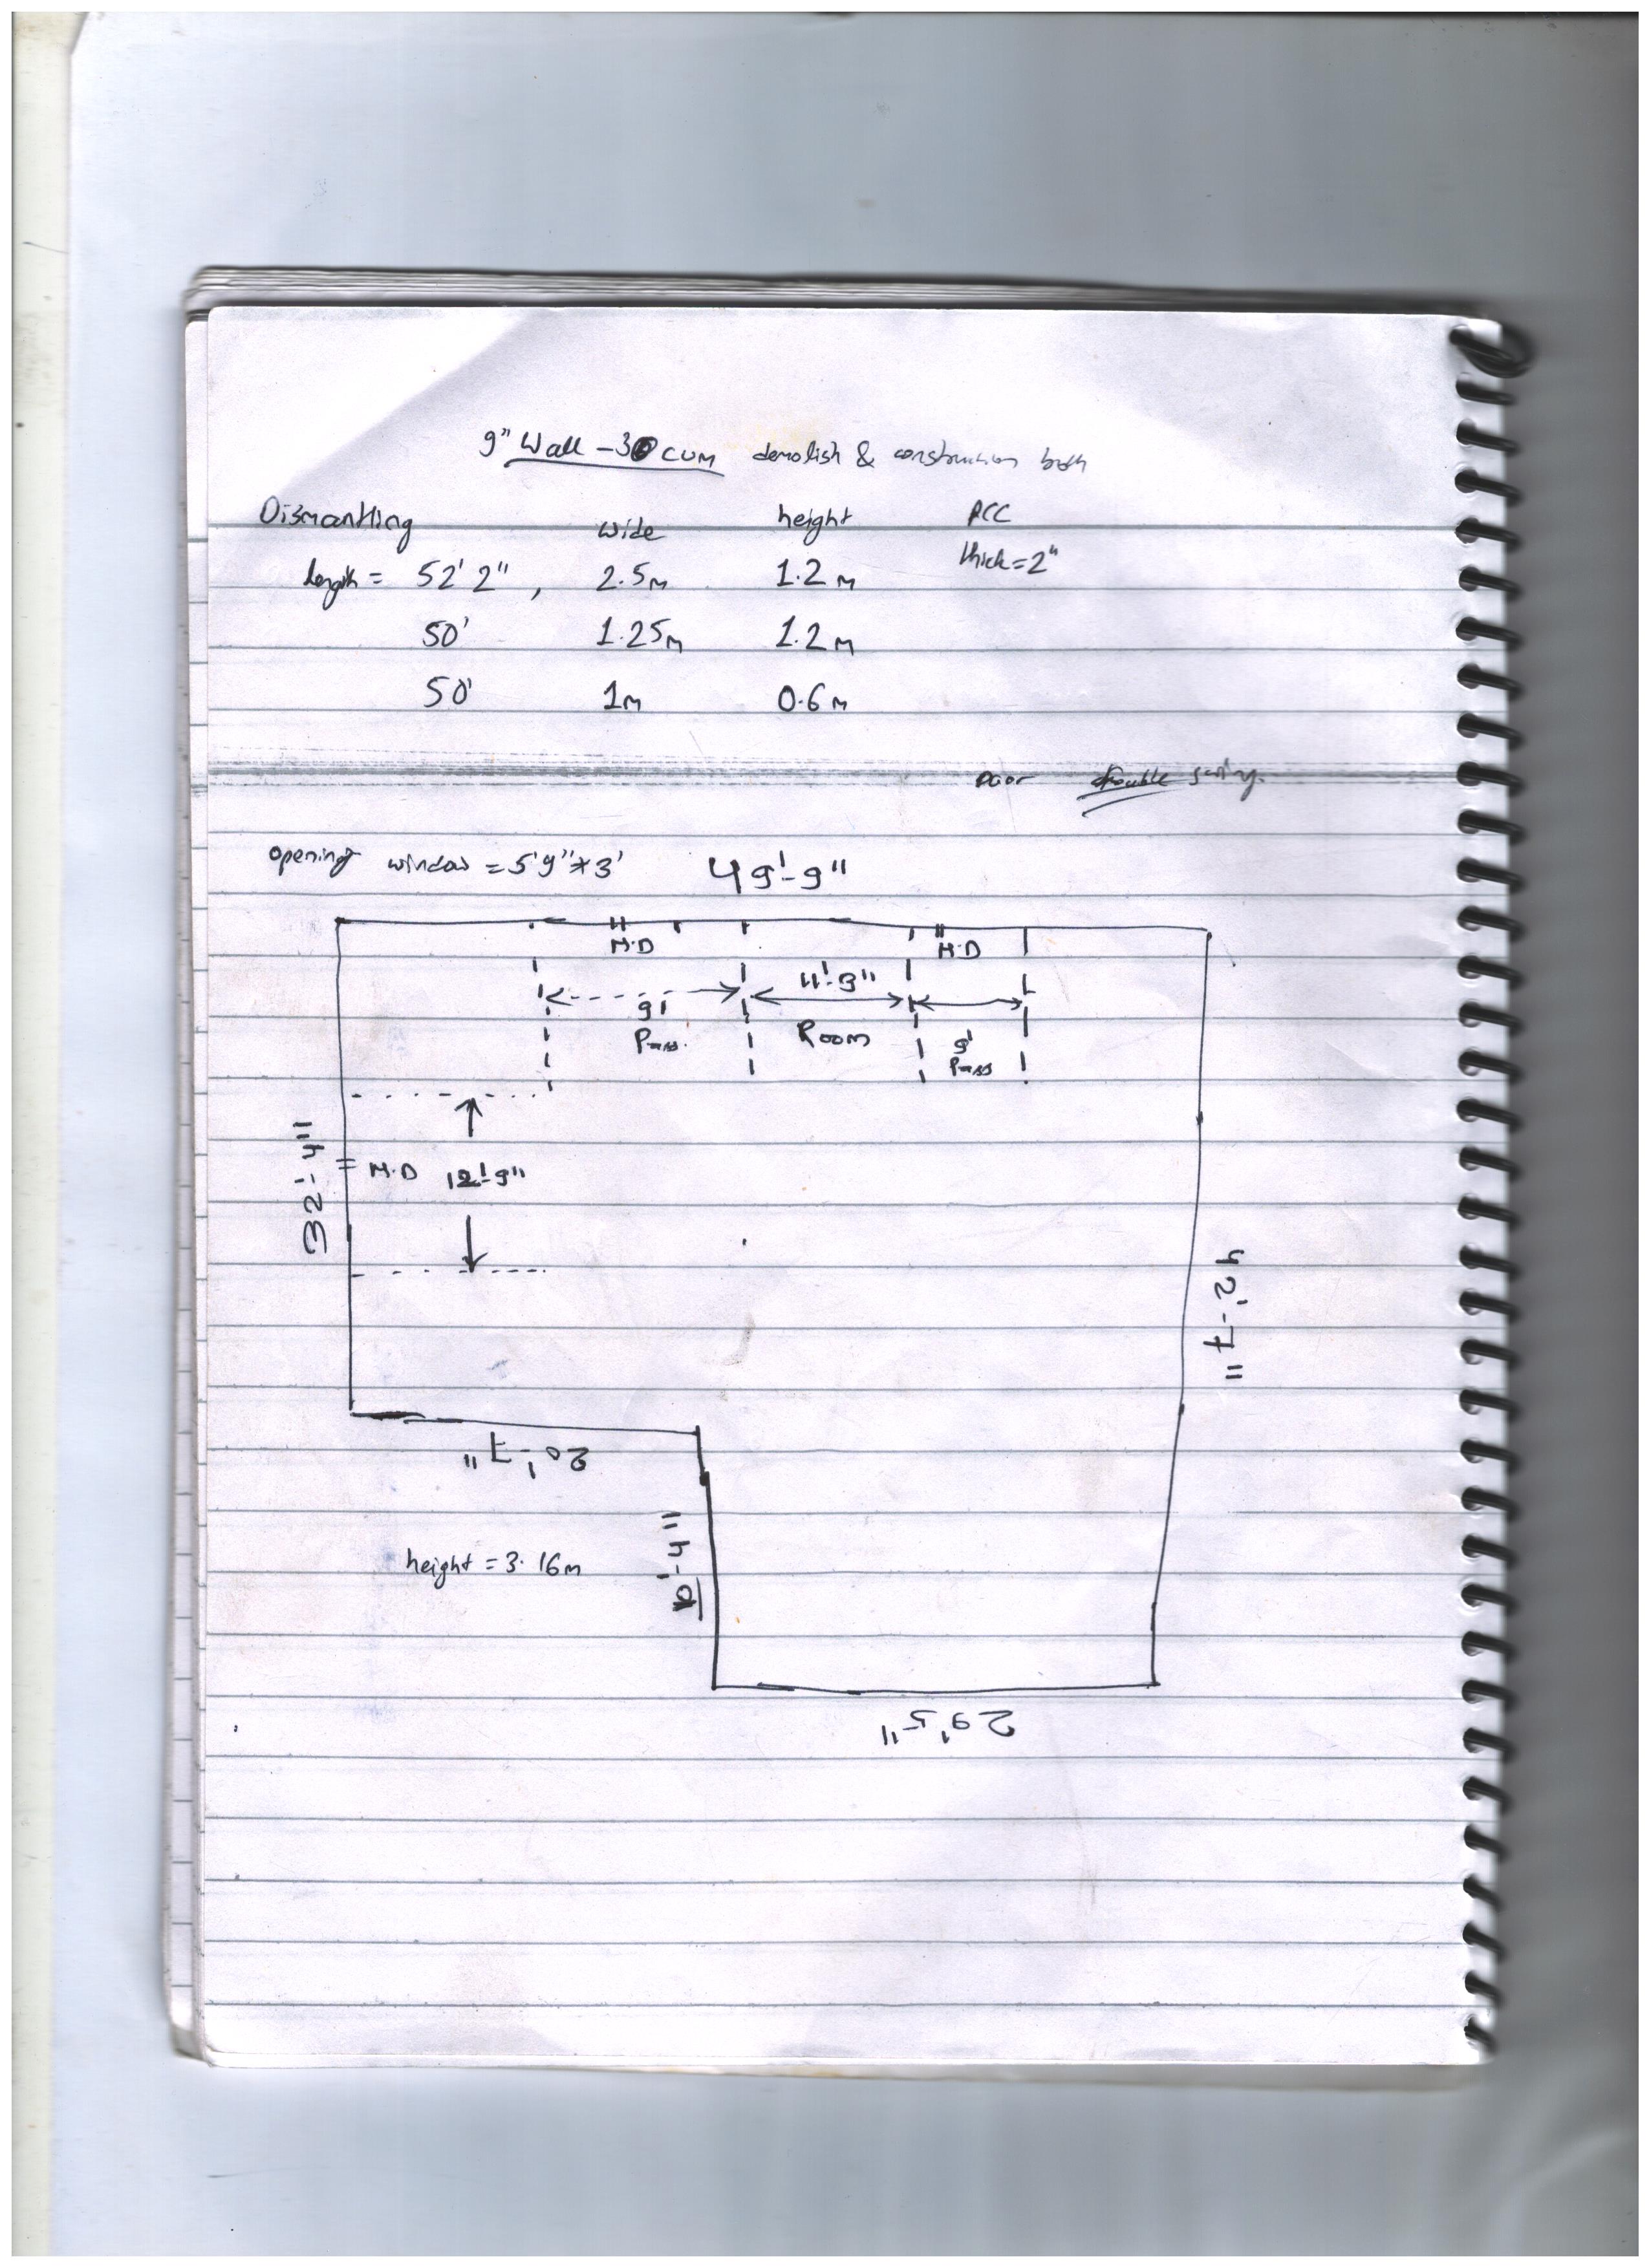 9" Wall - 30 CUM demolish & construction both
Dismantling wide height PCC
thick = 2"
length = 52' 2", 2.5m 1.2m
50' 1.25m 1.2m
50' 1m 0.6m
Door double swing.
opening window = 5'9" * 3'
49'-9"
M.D M.D
9' 11'-9"
Pass. Room 9'
Pass
32'-4"
M.D 12'-9"
42'-7"
20'-7"
height = 3.16m
10'-4"
29'5"